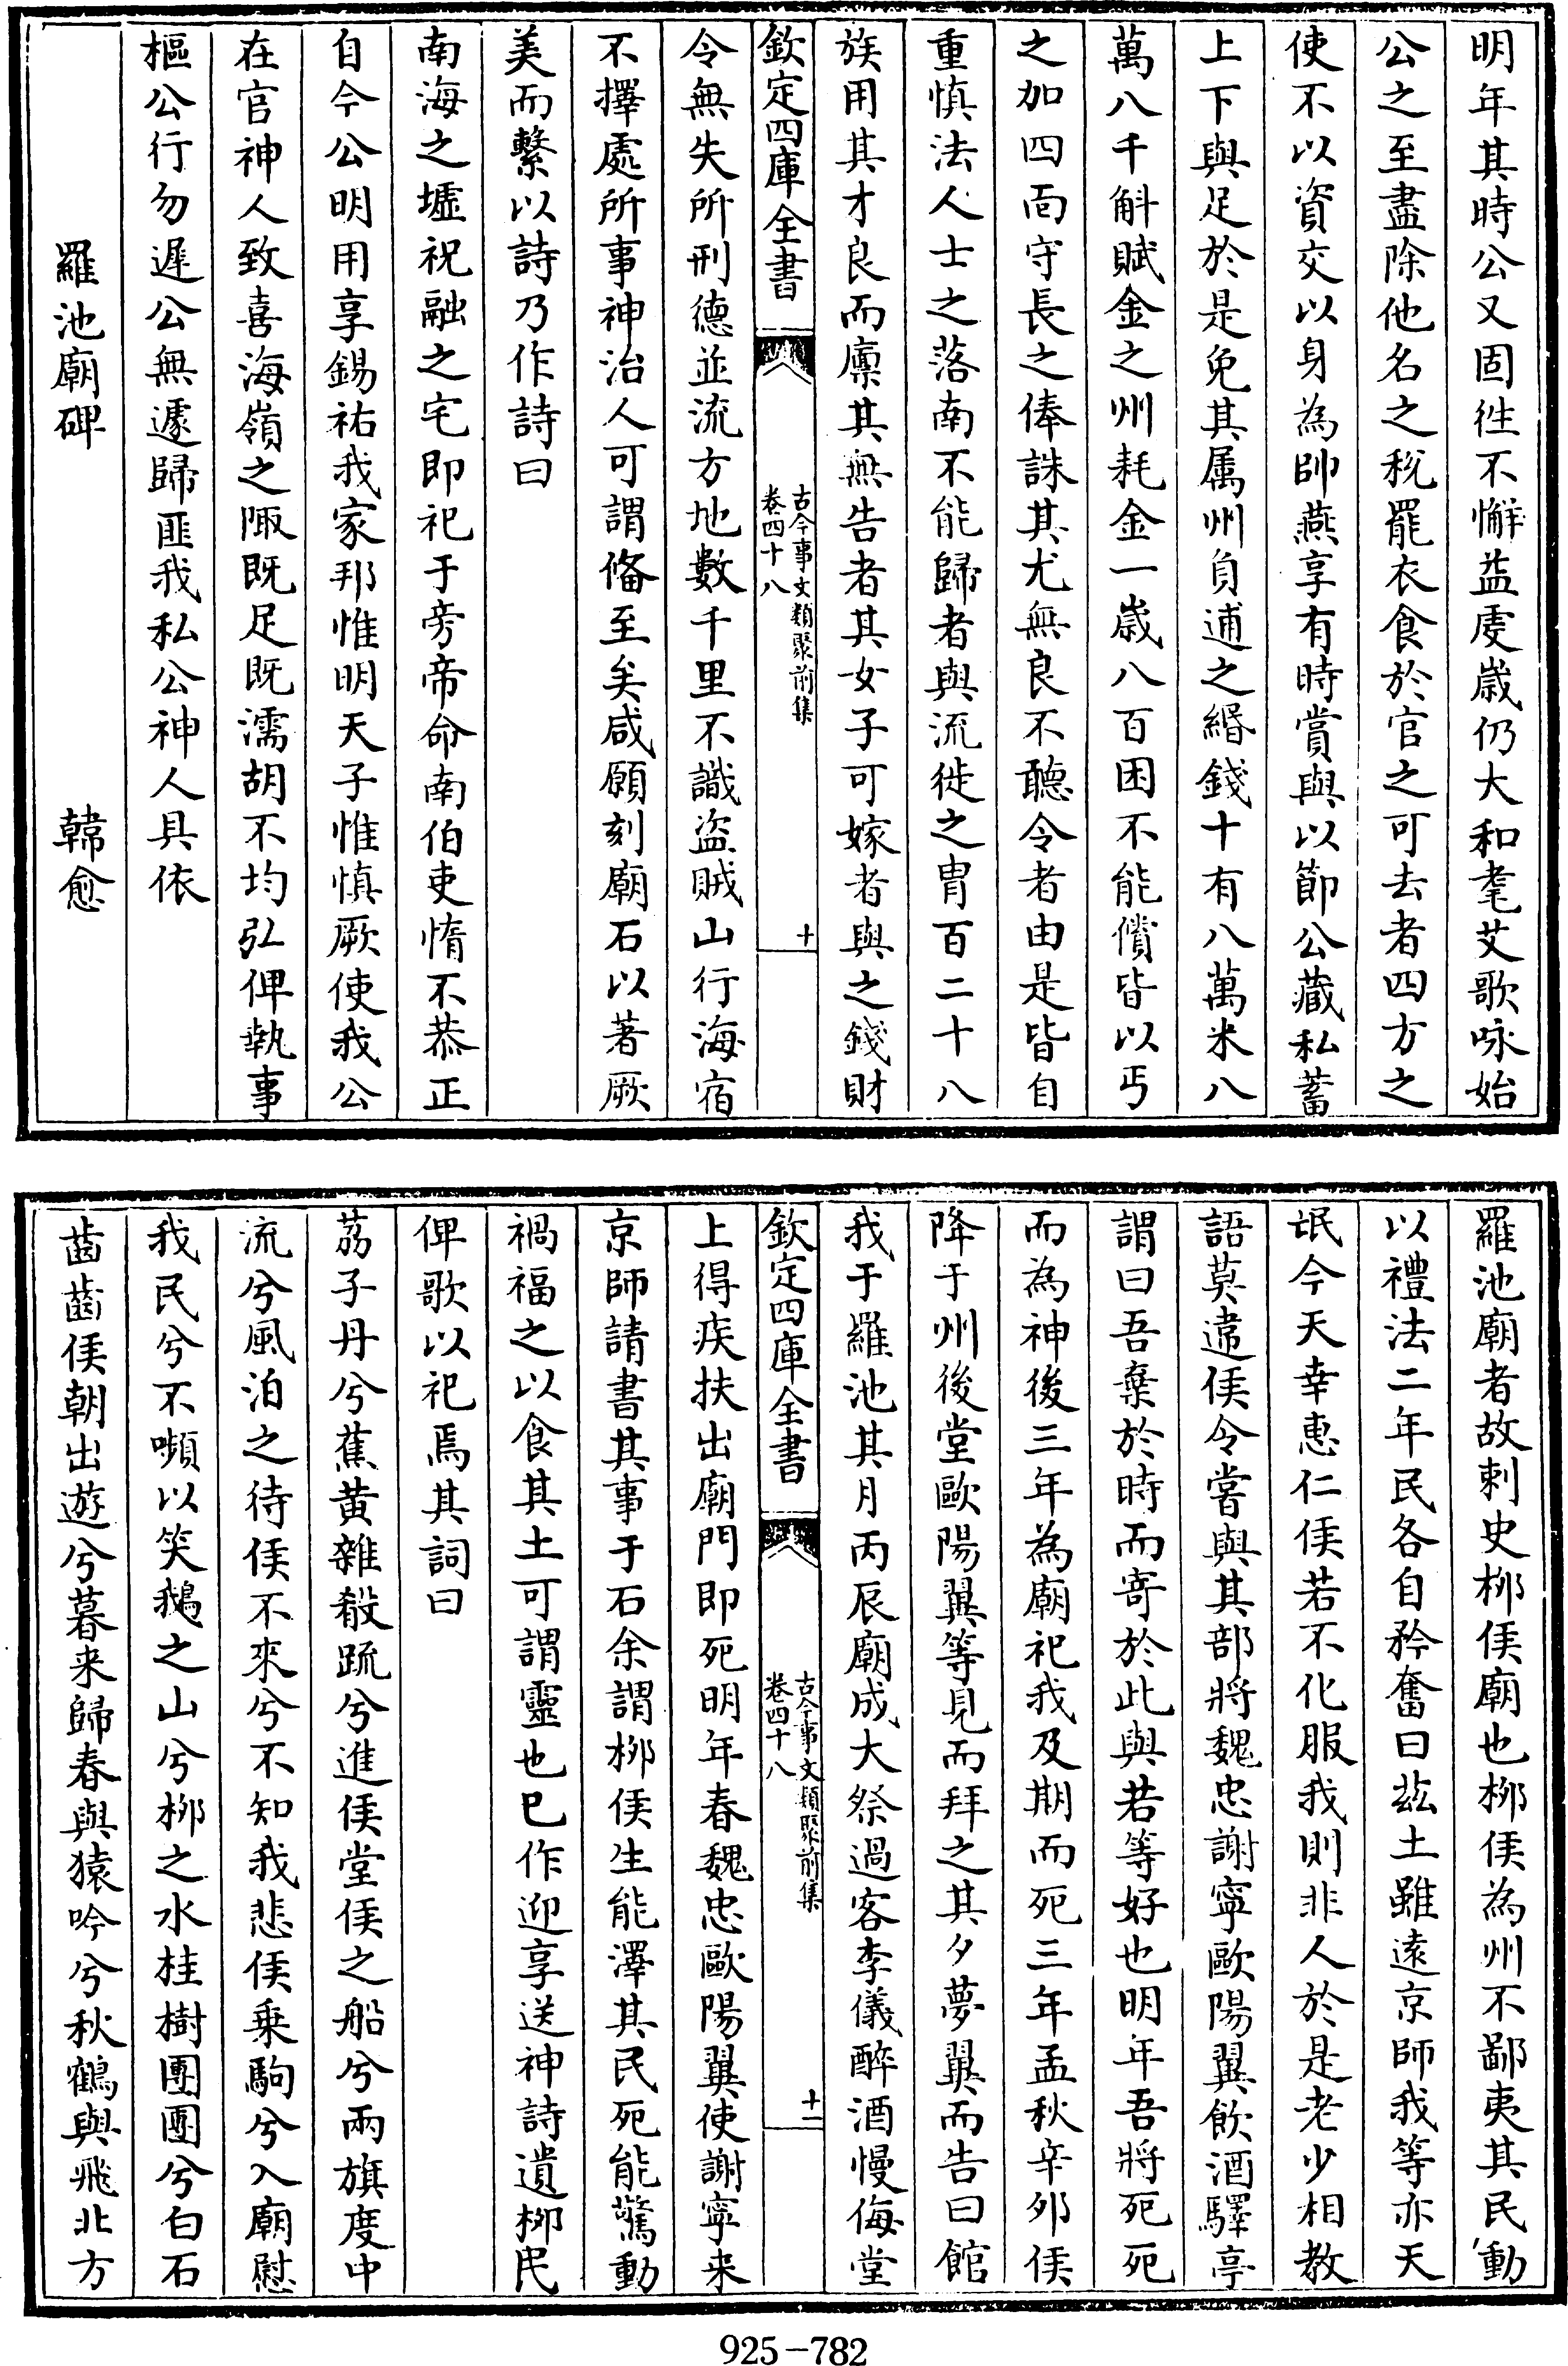 明年其時公又固徃不懈益䖍歲仍大和耄艾歌咏始
公之至盡除他名之稅罷衣食於官之可去者四方之
使不以資交以身為帥燕享有時賞與以節公藏私蓄
上下與足於是免其属州負逋之緡錢十有八萬米八
萬八千斛賦金之州耗金一歲八百困不能償皆以丐
之加四面守長之俸誅其尤無良不聽令者由是皆自
重慎法人士之落南不能歸者與流徙之胄百二十八
族用其才良而廩其無告者其女子可嫁者與之錢財
欽定四庫全書
古今事文類聚前集
卷四十八
十
令無失所刑德並流方地數千里不識盜賊山行海宿
不擇處所事神治人可謂俻至矣咸願刻廟石以著厥
美而繫以詩乃作詩曰
南海之墟祝融之宅即祀于旁帝命南伯吏惰不恭正
自今公明用享錫祐我家邦惟明天子惟慎厥使我公
在官神人致喜海嶺之陬既足既濡胡不均弘俾執事
樞公行勿遲公無遽歸匪我私公神人具依
羅池廟碑 韓愈
羅池廟者故刺史栁侯廟也栁侯為州不鄙夷其民動
以禮法二年民各自矜奮曰玆土雖遠京師我等亦天
氓今天幸惠仁侯若不化服我則非人於是老少相教
語莫違侯令嘗與其部將魏忠謝寧歐陽翼飲酒驛亭
謂曰吾棄於時而寄於此與若等好也明年吾將死死
而為神後三年為廟祀我及期而死三年孟秋辛夘侯
降于州後堂歐陽翼等見而拜之其夕夢翼而告曰館
我于羅池其月丙辰廟成大祭過客李儀醉酒慢侮堂
欽定四庫全書
古今事文類聚前集
卷四十八
十一
上得疾扶出廟門即死明年春魏忠歐陽翼使謝寧来
京師請書其事于石余謂栁侯生能澤其民死能驚動
禍福之以食其土可謂靈也已作迎享送神詩遺栁民
俾歌以祀焉其詞曰
荔子丹兮蕉黄雜殽疏兮進侯堂侯之船兮兩旗度中
流兮風泊之待侯不來兮不知我悲侯乗駒兮入廟慰
我民兮不嚬以笑鵝之山兮栁之水桂樹團團兮白石
齒齒侯朝出遊兮暮来歸春與猿吟兮秋鶴與飛北方
925-782